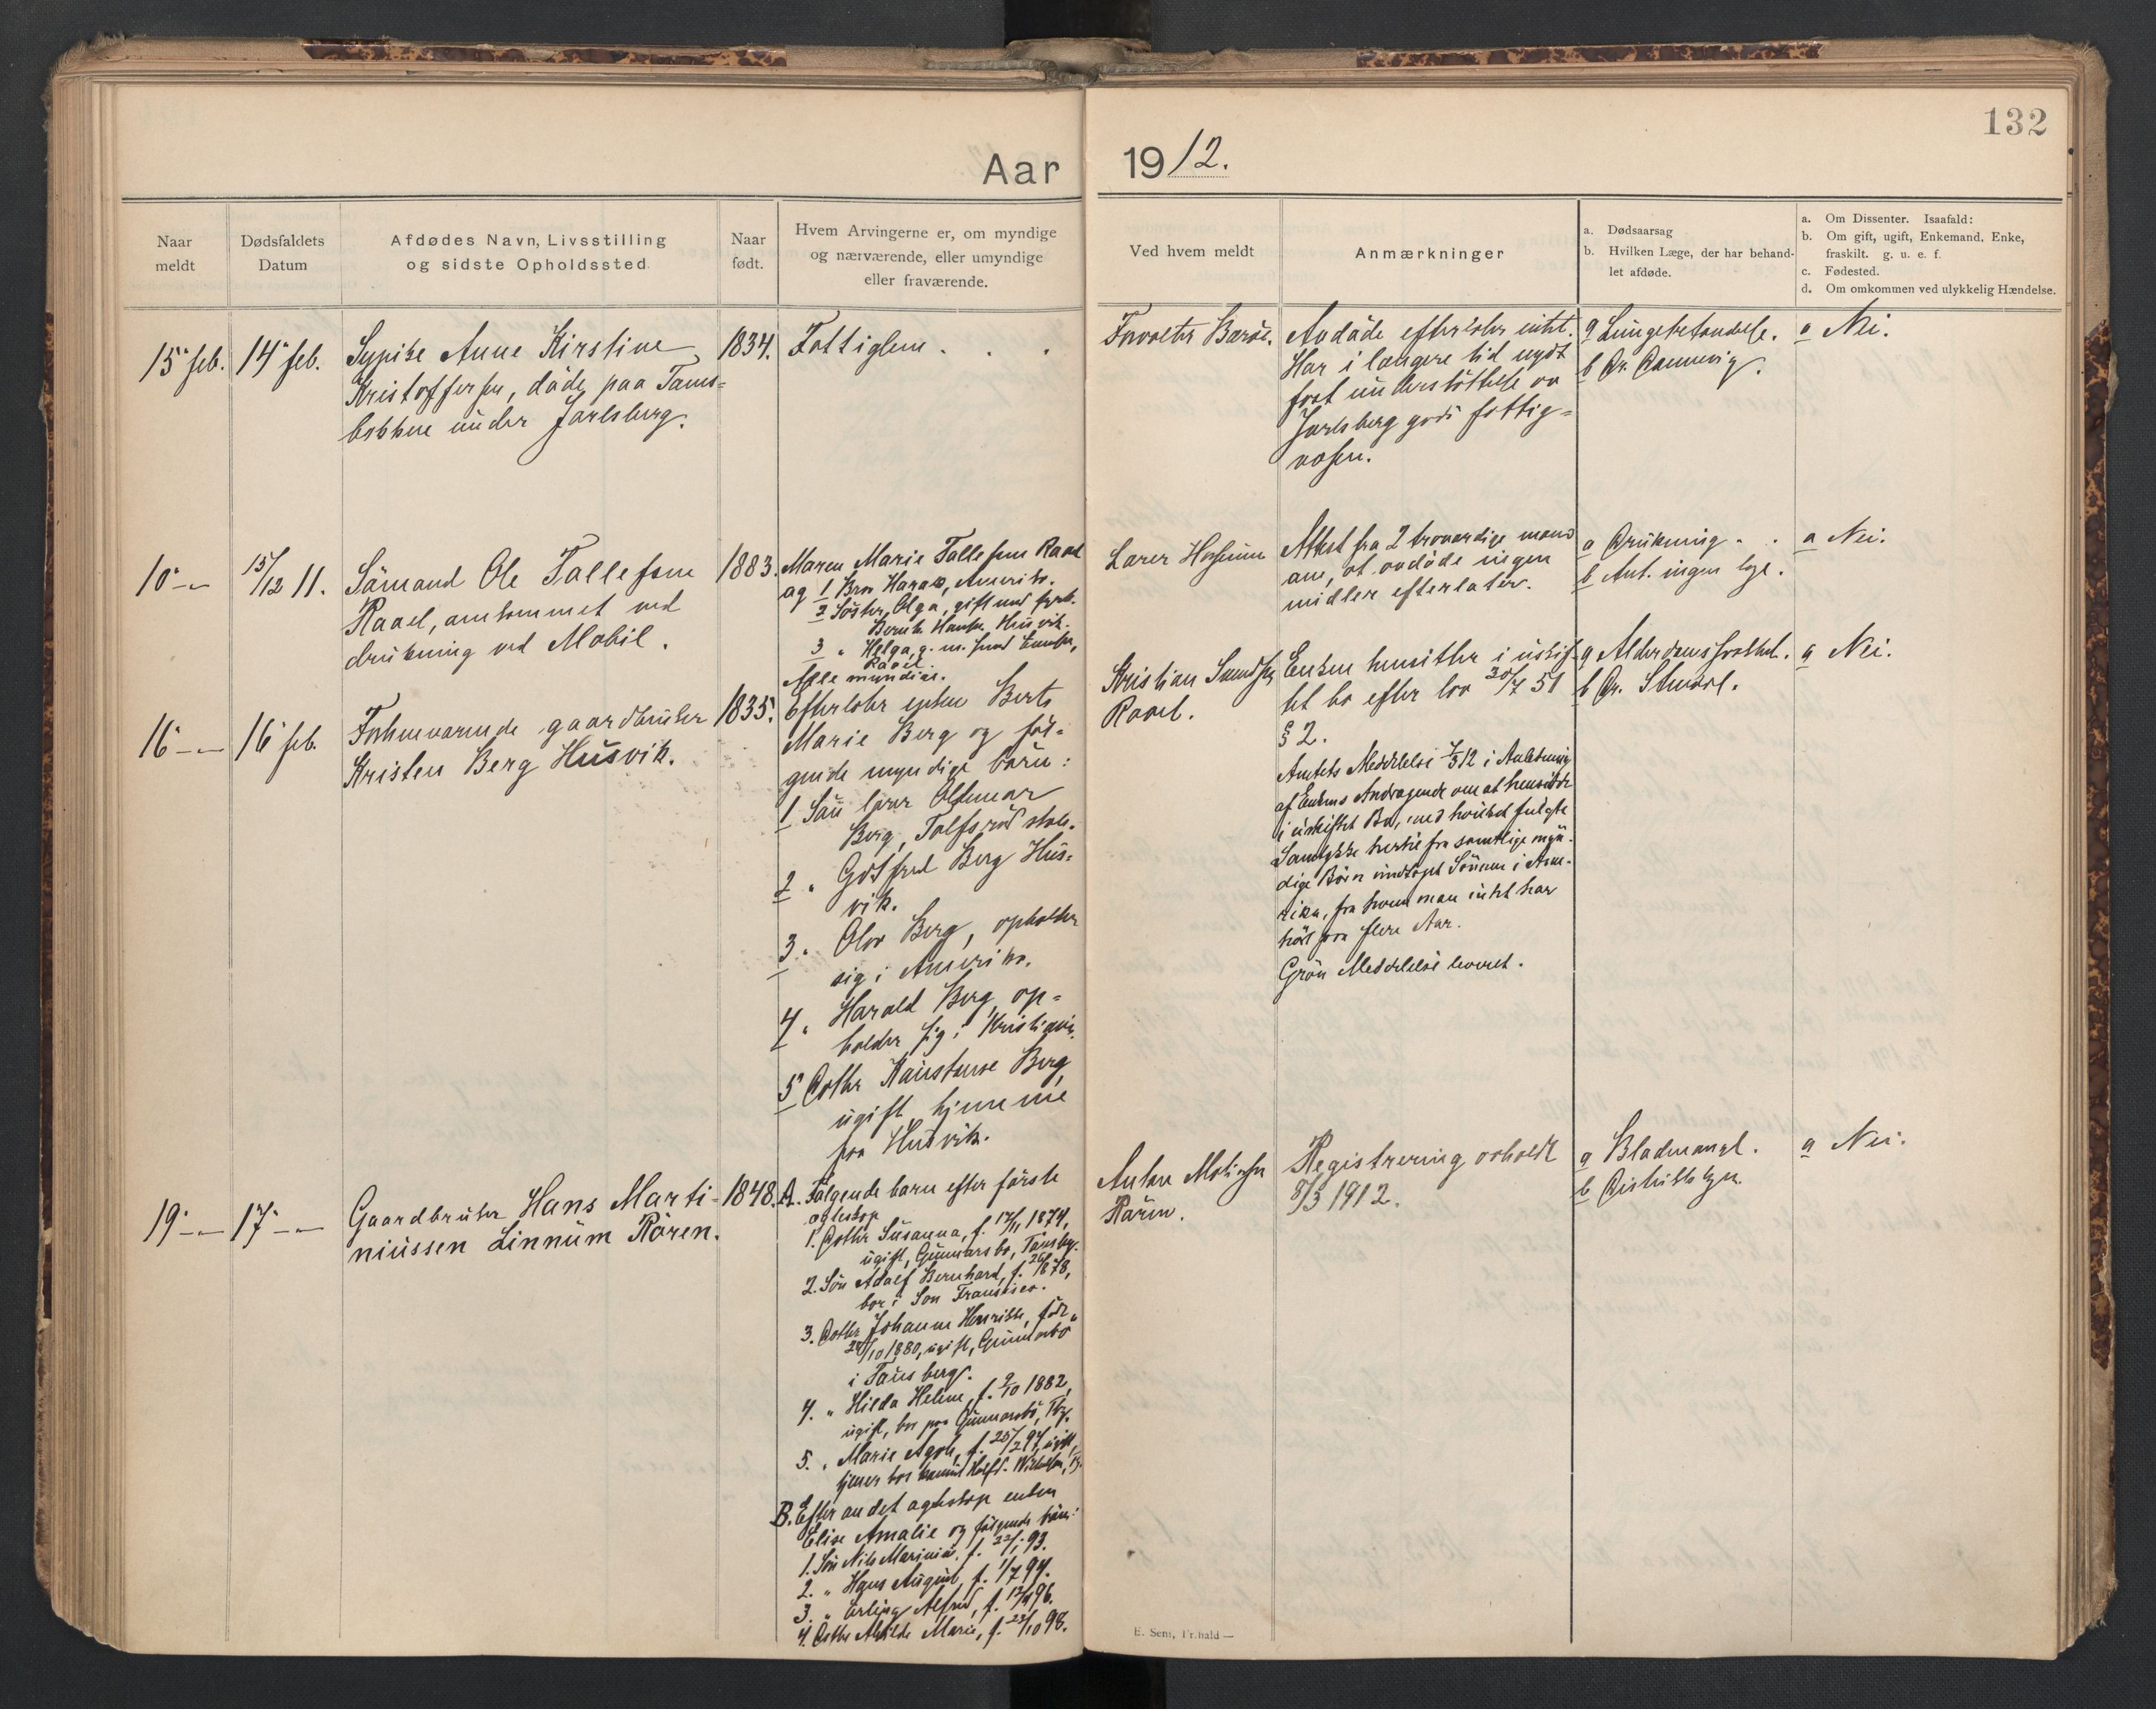 132
Aar 1912.
Naar meldt
Dødsfaldets Datum
Afdødes Navn, Livsstilling og sidste Opholdssted.
Naar født.
Hvem Arvingerne er, om myndige og nærværende, eller umyndige eller fraværende.
Ved hvem meldt
Anmærkninger
a. Dødsaarsag
b. Hvilken Læge, der har behandlet afdøde.
a. Om Dissenter. Isaafald:
b. Om gift, ugift, Enkemand, Enke, fraskilt. g. u. e. f.
c. Fødested.
d. Om omkommen ved ulykkelig Hændelse.
15 feb.
14 feb.
Sypike Anne Kirstine
Kristoffersen, döde paa Tams-
bokken under Jarlsberg.
1834.
Fattiglem.
Forvalter Barøe.
Avdöde efterlater intet.
Har i længere tid nydt
fast understöttelse av
Jarlsberg gods fattig-
væsen.
a Lungebetændelse.
b Dr.
a Nei.
10 -"-
15/12 11.
Sömand Ole Tallefsen
Raael, omkommet ved
drukning ved Mobil.
1883.
Maren Marie Tallefsen Raael
og 1 Bror Harald, Amerika.
2 Söster Olga, gift med
Bernh. Hansen Husvik.
3 " Helga, g. m.
Raael.
Alle myndige.
Lærer
Attest fra 2 troværdige mænd
om, at avdöde ingen
midler efterlater.
a Drukning.
b Ant. ingen læge.
a Nei.
16 -"-
16 feb.
Forhenværende gaardbruker
Kristen Berg Husvik.
1835.
Efterlater enken Berte
Marie Berg og föl-
gende myndige börn:
1 Sön lærer Oldemar
Berg, Tolfsröd skole.
2 " Gotfred Berg Hus-
vik.
3 " Olav Berg, opholder
sig i Amerika.
4 " Harald Berg, op-
holder sig i Kristiania.
5 Datter Konstanse Berg,
ugift, hjemme
paa Husvik.
Kristian
Raael.
Enken hensitter i uskif-
tet bo efter lov 30/7 51
§ 2.
Amtets Meddelelse 7/5 12 i Anledning
af Enkens Andragende om at hensidde
i uskiftet Bo, med hvilket fulgte
Samtykke hertil fra samtlige myn-
dige Börn undtagt Sönnen i Ame-
rika, fra hvem man intet har
hört paa flere Aar.
Grön Meddelelse levert.
a Alderdomssvakhet.
b Dr.
a Nei.
19 -"-
17 -"-
Gaardbruker Hans Marti-
niussen Linnum Rören.
1848.
A. Fölgende barn efter förste
egteskap
1. Datter Susanna, f. 17/11 1874,
ugift, Gunnarsbö, Tönsbg.
2. Sön Adolf Bernhard, f. 26/8 78,
bor i San Fransisco.
3. Datter Johanne Henrikke, född
24/10 1880, ugift, Gunnarsbö
i Tönsberg.
4. " Hilda Helene, f. 9/10 1882,
ugift, bor paa Gunnarsbö, Tbg.
5. " Marie Agot, f. 25/2 94, ugift,
tjener hos
B. Efter andet egteskap enken
Elise Amalie og fölgende börn:
1. Sön Nils Marinius, f. 22/1 93.
2. " Hans August, f. 1/7 94.
3. " Erling Alfred, f. 96.
4. Datter Matilde Marie, f. 22/10 98.
Anton
Rören.
Registrering avholdt
8/3 1912.
a Blodmangel.
b Distriktslægen.
a Nei.
E. Sem, Fr.hald —